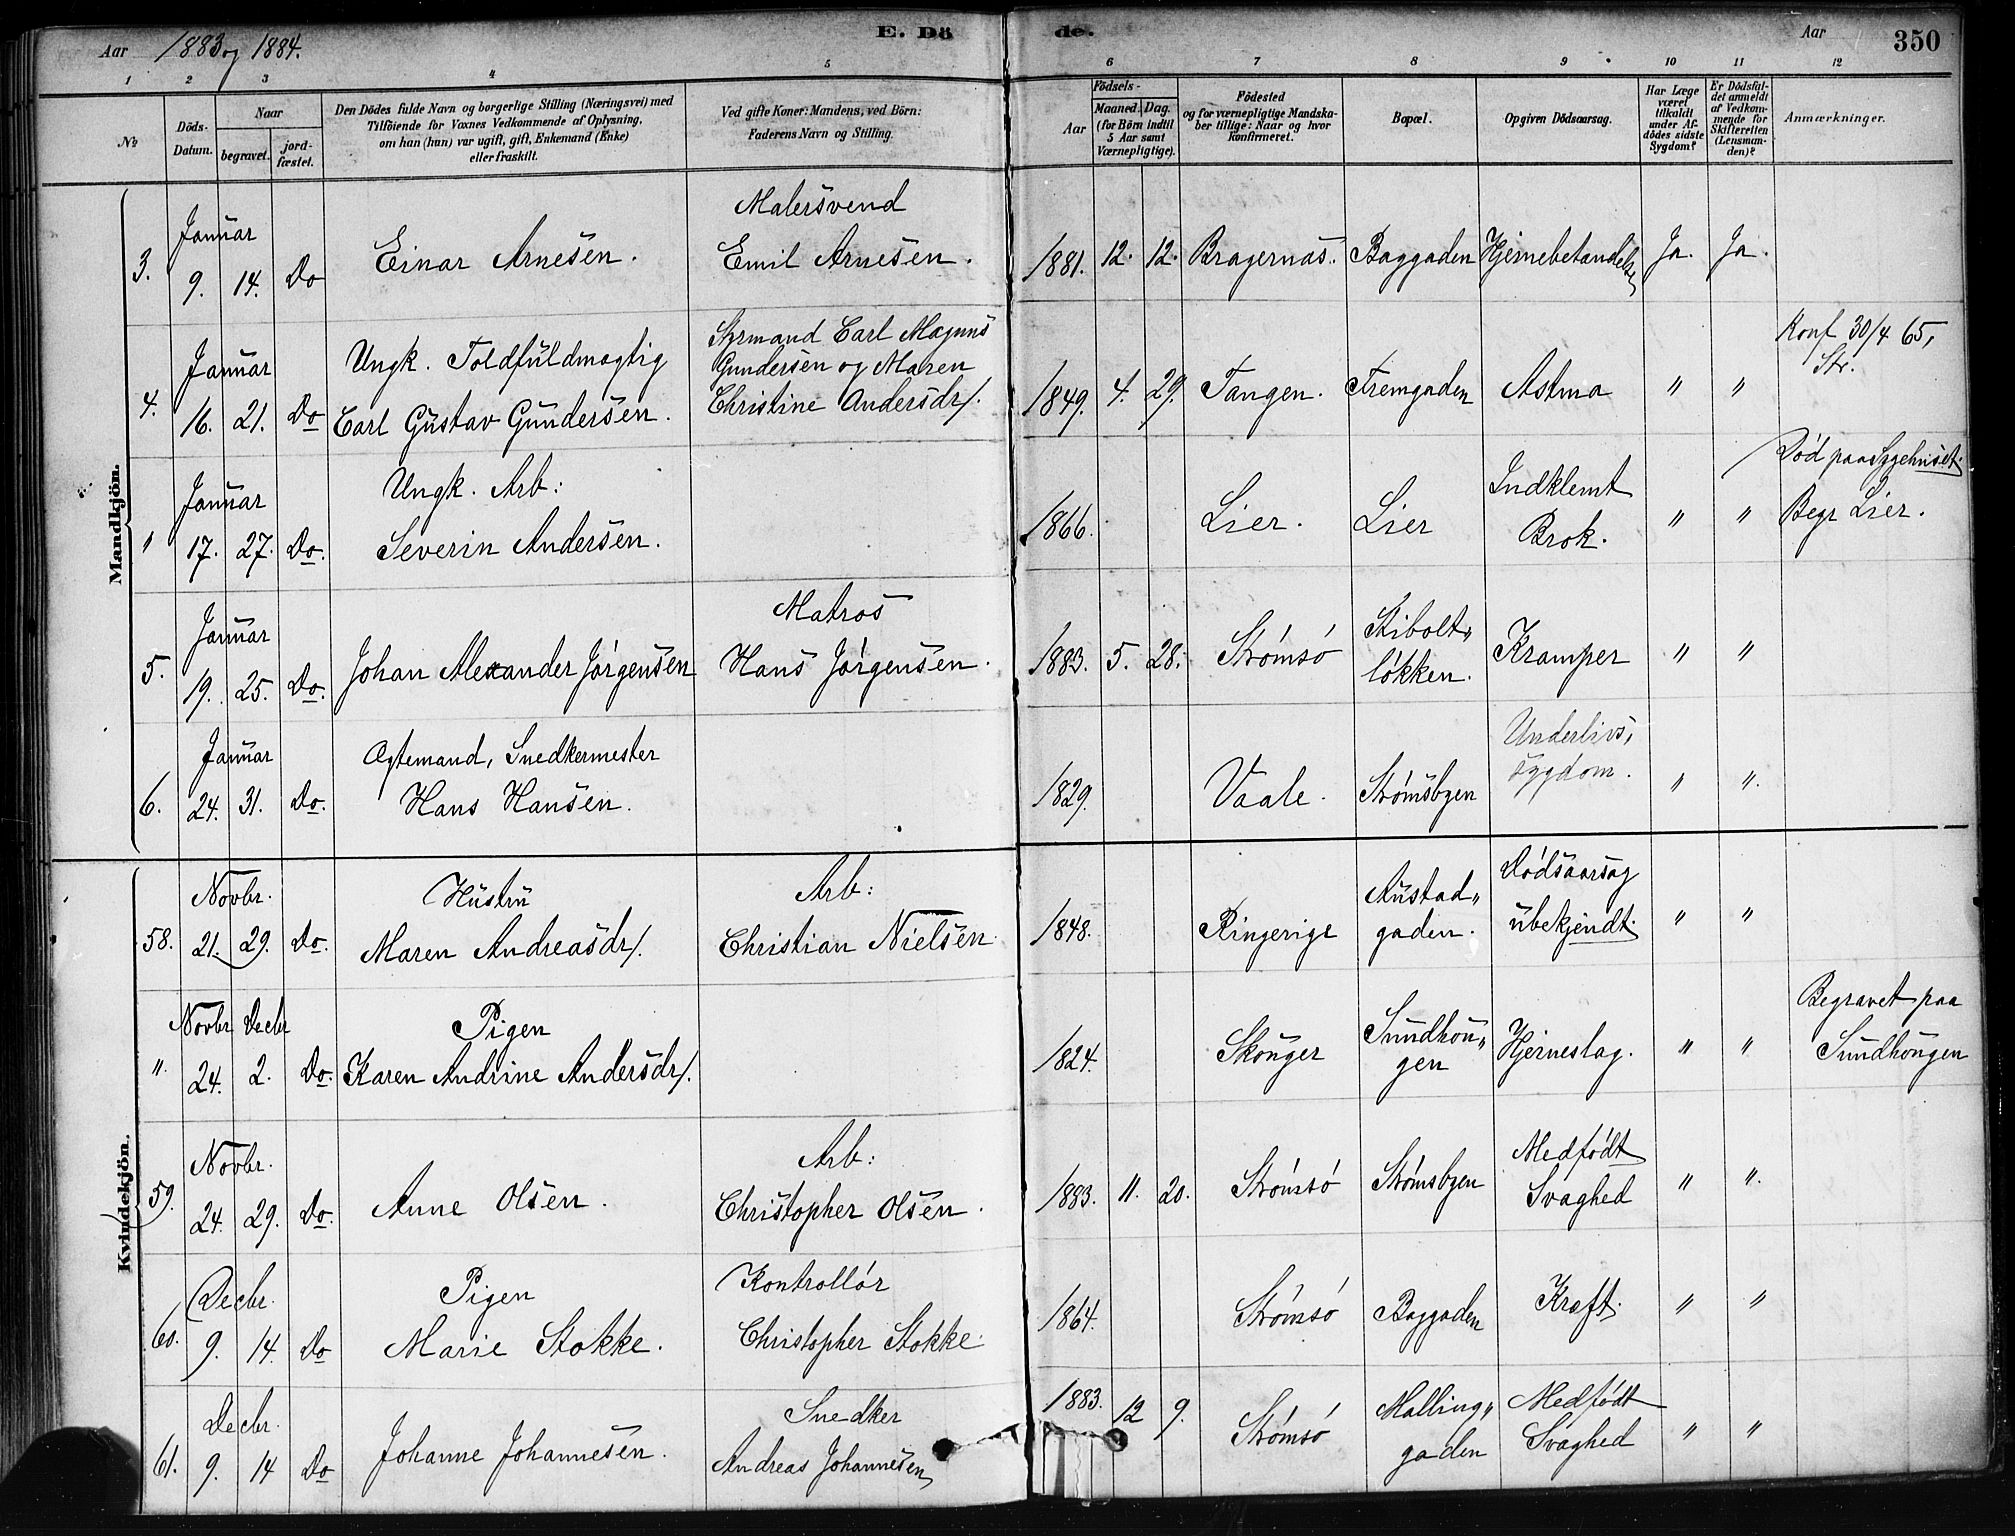 Aar 1883 og 1884.
E. Dö
de.
Aar
350
1 2 3 4 5 6 7 8 9 10 11 12
No
Döds-Datum.
Naar
begravet.
jord-fæstet.
Den Dödes fulde Navn og borgerlige Stilling (Næringsvei) med
Tilföiende for Voxnes Vedkommende af Oplysning,
om han (hun) var ugift, gift, Enkemand (Enke)
eller fraskilt.
Ved gifte Koner: Mandens, ved Börn:
Faderens Navn og Stilling.
Födsels-
Aar
Maaned. Dag.
(for Börn indtil
5 Aar samt
Værnepligtige).
Födested
og for værnepligtige Mandska-
ber tillige: Naar og hvor
konfirmeret.
Bopæl.
Opgiven Dödsaarsag.
Har Læge
været
tilkaldt
under Af-
dödes sidste
Sygdom?
Er Dödsfal-
det anmeldt
af Vedkom-
mende for
Skifteretten
(Lensman-
den)?
Anmærkninger.
Mandkjön.
Januar Malersvend
3. 9. 14. Do Einar Arnesen. Emil Arnesen. 1881. 12. 12. Bragernæs. Baggaden Hjernebetændelse Ja. Ja.
Januar Ungk. Toldfuldmægtig Styrmand Carl Magnus Gundersen og Maren Konf 30/4 65, Str.
4. 16. 21. Do Carl Gustav Gundersen. Christine Andersdr/. 1849. 4. 29. Tangen. Fremgaden Astma " "
Januar Ungk. Arb: Indklemt Død paa Sygehuset.
" 17. 27. Do. Severin Andersen. 1866. Lier. Lier Brok. " " Begr Lier.
Januar Matros Stibolt"
5. 19. 25. Do. Johan Alexander Jørgensen Hans Jørgensen. 1883. 5. 28. Strømsø løkken. Kramper " "
Januar Ægtemand, Snedkermester Underlivs,
6. 24. 31. Do. Hans Hansen. 1829. Vaale. Strømsbyen sygdom. " ".
Kvindekjön.
Novbr. Hustru Arb: Austad" Dødsaarsag
58. 21. 29. Do. Maren Andreasdr/. Christian Nielsen 1848. Ringerige gaden. ubekjendt. " "
Novbr Decbr Pigen Sundhou" Begravet paa
". 24. 2. Do. Karen Andrine Andersdr/. 1824. Skouger gen Hjerneslag. " " Sundhougen
Novbr. Arb: Medfødt
59. 24. 29. Do. Anne Olsen. Christopher Olsen. 1883. 11. 20. Strømsø Strømsbyen Svaghed " ".
Decbr. Pigen Kontrollør
60. 9. 14. Do Marie Stokke. Christopher Stokke. 1864. Strømsø Baggaden Kræft. " "
Decbr. Snedker Malling" Medfødt
61. 9. 14 Do Johanne Johannesen. Andreas Johannesen 1883. 12 9. Strømsø gaden Svaghed " "